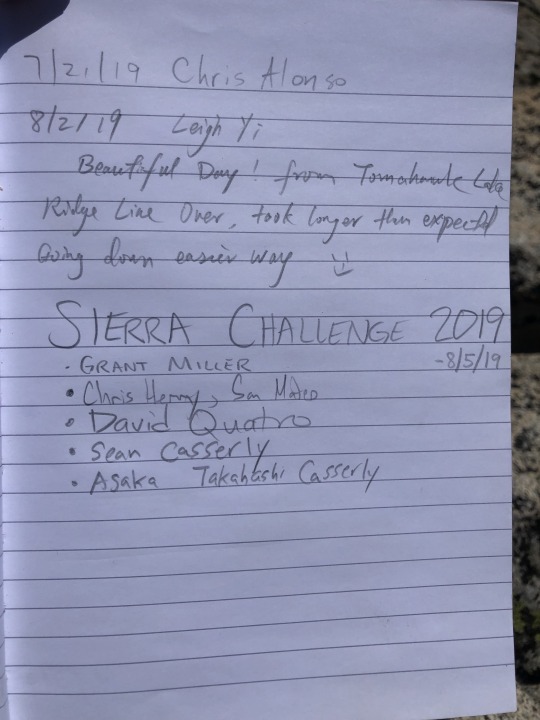 7/21/19 Chris Alonso
8/2/19 Leigh Yi
Beautiful Day! from Tomahawk Lake
Ridge Line Over, took longer than expected
Going down easier way
SIERRA CHALLENGE 2019
· GRANT MILLER -8/5/19
• Chris Henry, San Mateo
• David Quatro
• Sean Casserly
• Asaka Takahashi Casserly